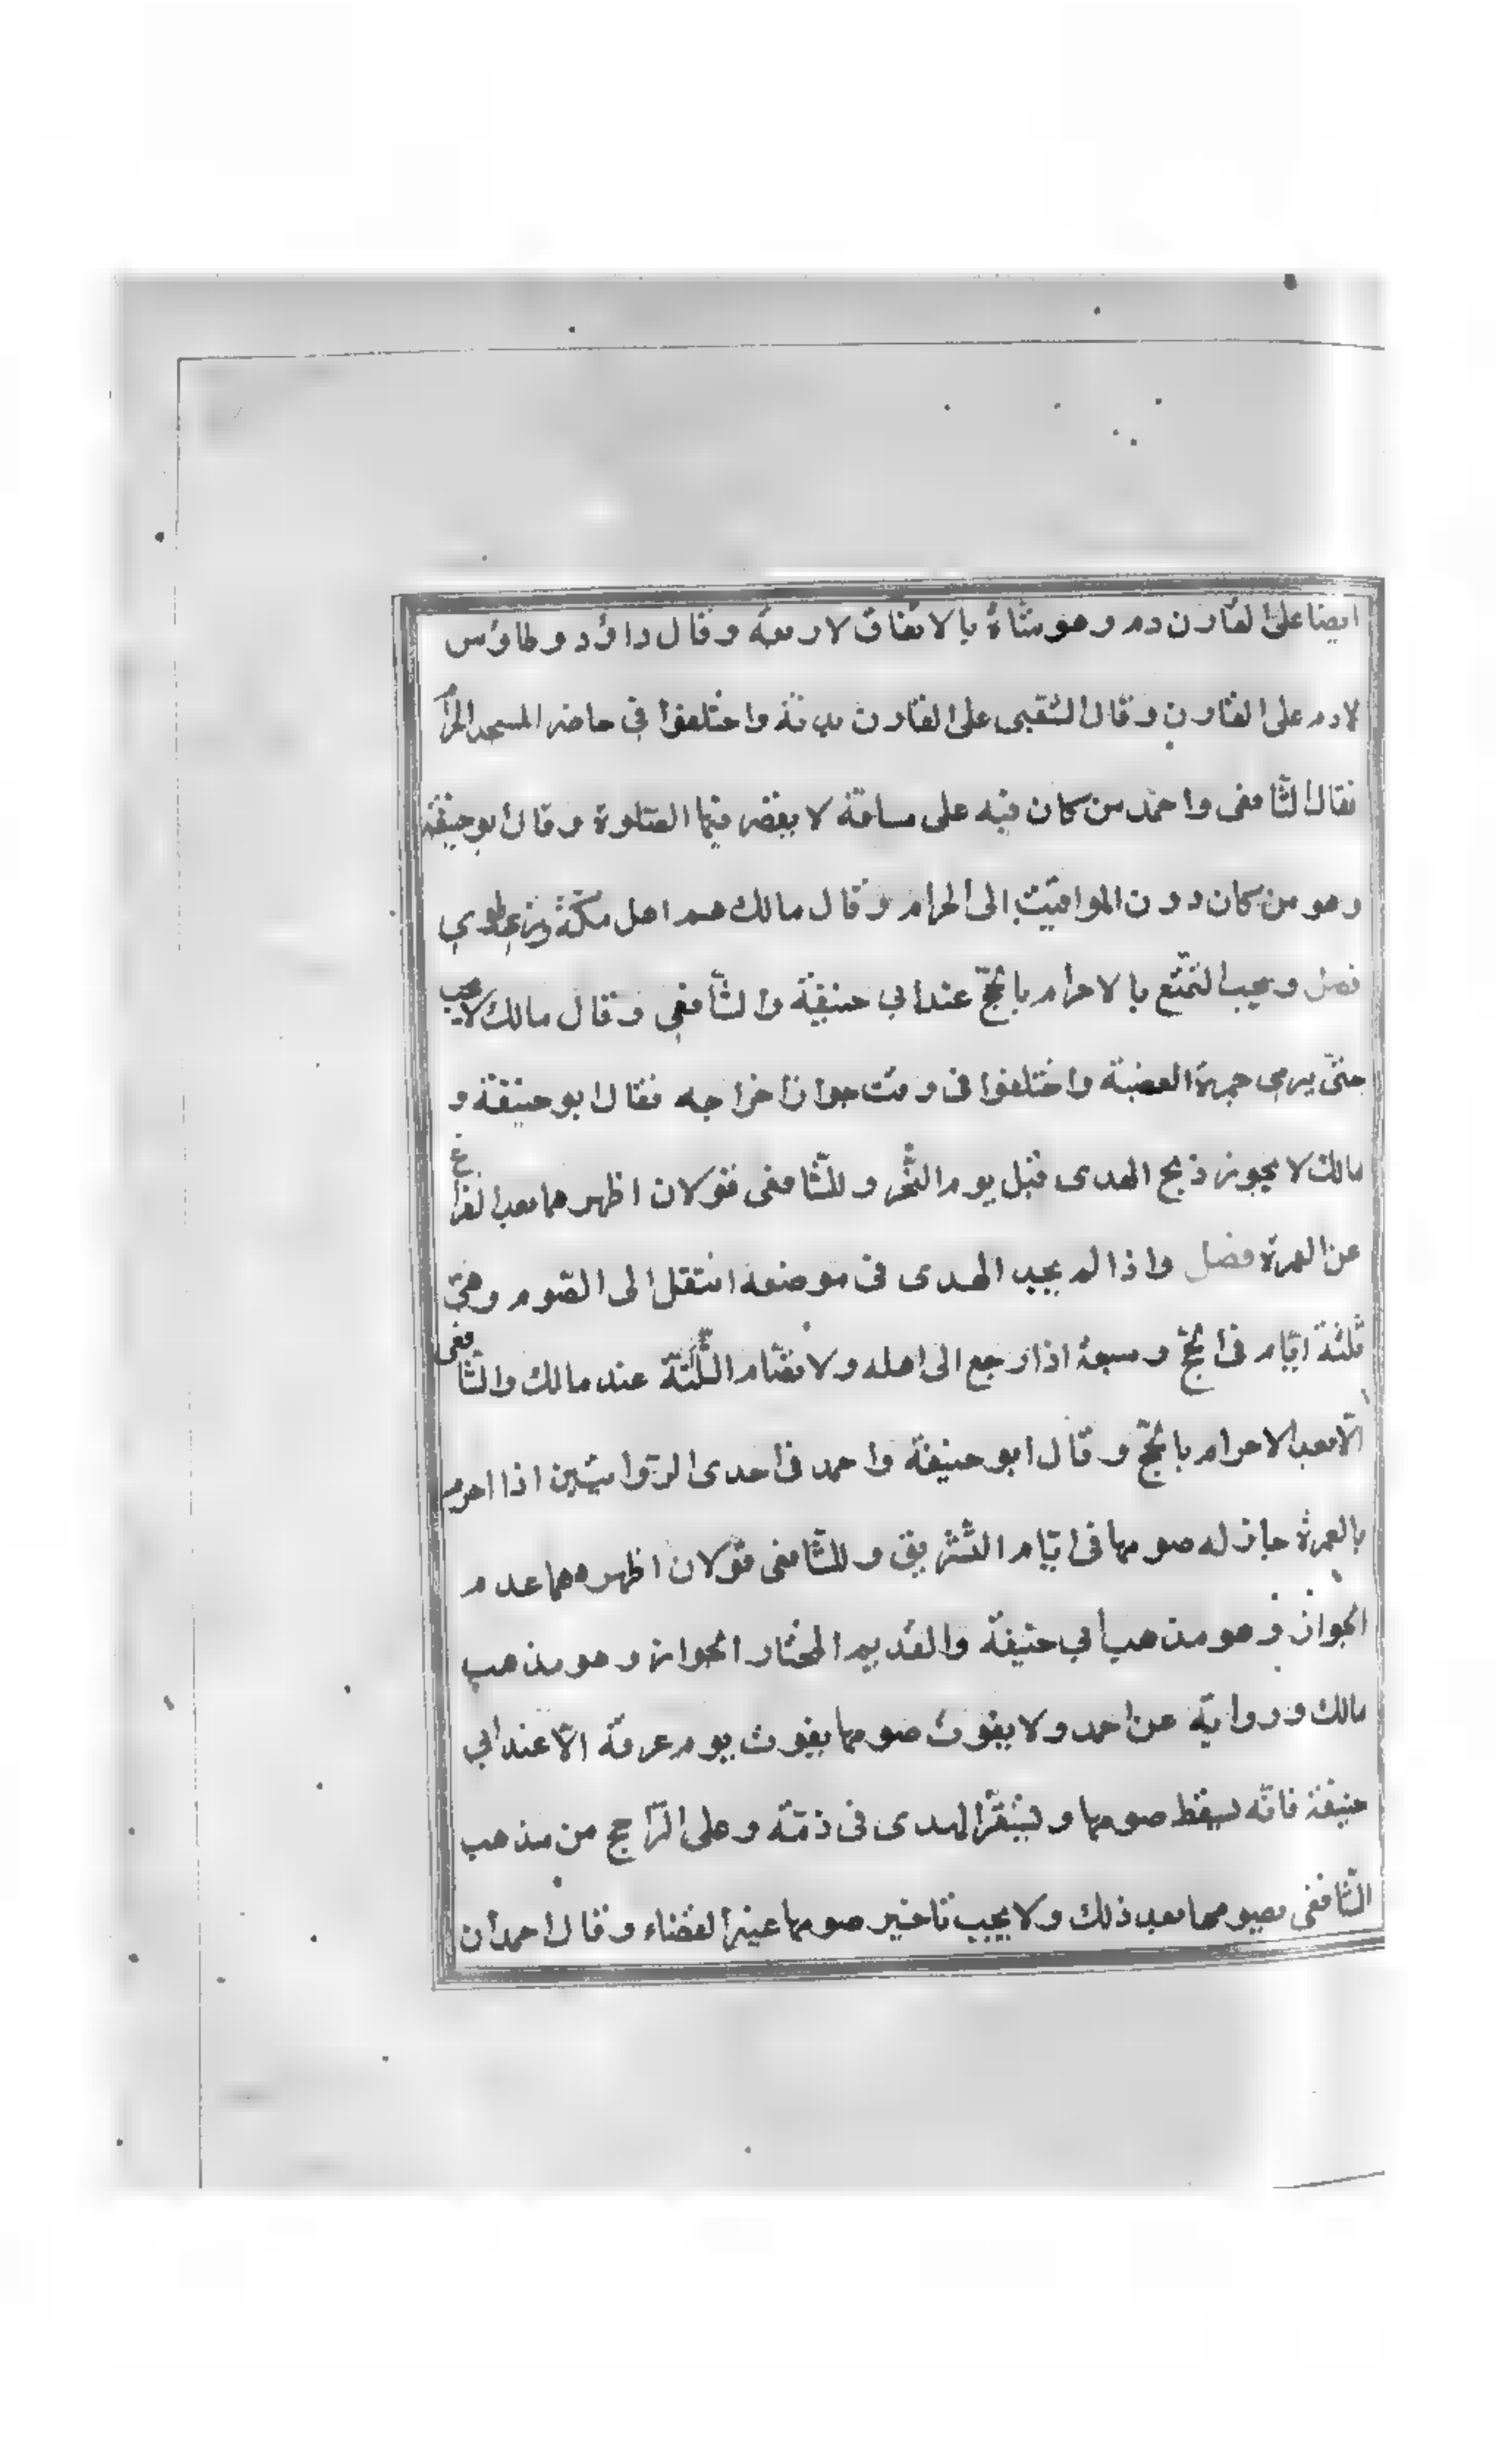 ايضا على القارن دم وهو شاة بالاتفاق لاربعة وقال داؤد وطاؤس
لا دم على القارن وقال الشعبى على القارن بدنة واختلفوا فى حاضر المسجد الحرام
فقال الشافعى واحمد من كان فيه على مسافة لا يقصر فيها الصلوة وقال ابو حنيفة
وهو من كان دون المواقيت الى الحرام وقال مالك هم اهل مكة وذى طوى
فصل ويجب التمتع بالاحرام بالحج عند ابي حنيفة والشافعي وقال مالك لا يجب
حتى يرمى جمرة العقبة واختلفوا فى وقت جواز اخراجه فقال ابو حنيفة و
مالك لا يجوز ذبح الهدى قبل يوم النحر وللشافعى قولان اظهرهما بعد الفراغ
عن العمرة فصل واذا لم يجد الهدى فى موضعه انتقل الى الصوم وهى
ثلثة ايّام فى الحجّ وسبعة اذا رجع الى اهله ولا تصام الثّلثة عند مالك والشّافعى
الّا بعد الاحرام بالحجّ وقال ابو حنيفة واحمد فى احدى الروايتين اذا احرم
بالعمرة جاز له صومها فى ايّام التشريق وللشّافعى قولان اظهرهما عدم
الجواز وهو مذهب أبي حنيفة والقديم المختار الجواز وهو مذهب
مالك ورواية عن احمد ولا يفوت صومها بفوت يوم عرفة الّا عند ابي
حنيفة فانّه يسقط صومها ويستقرّ الهدى فى ذمّته وعلى الرّاجح من مذهب
الشّافعى يصومها بعد ذلك ولا يجب تاخير صومها غير القضاء وقال احمد ان